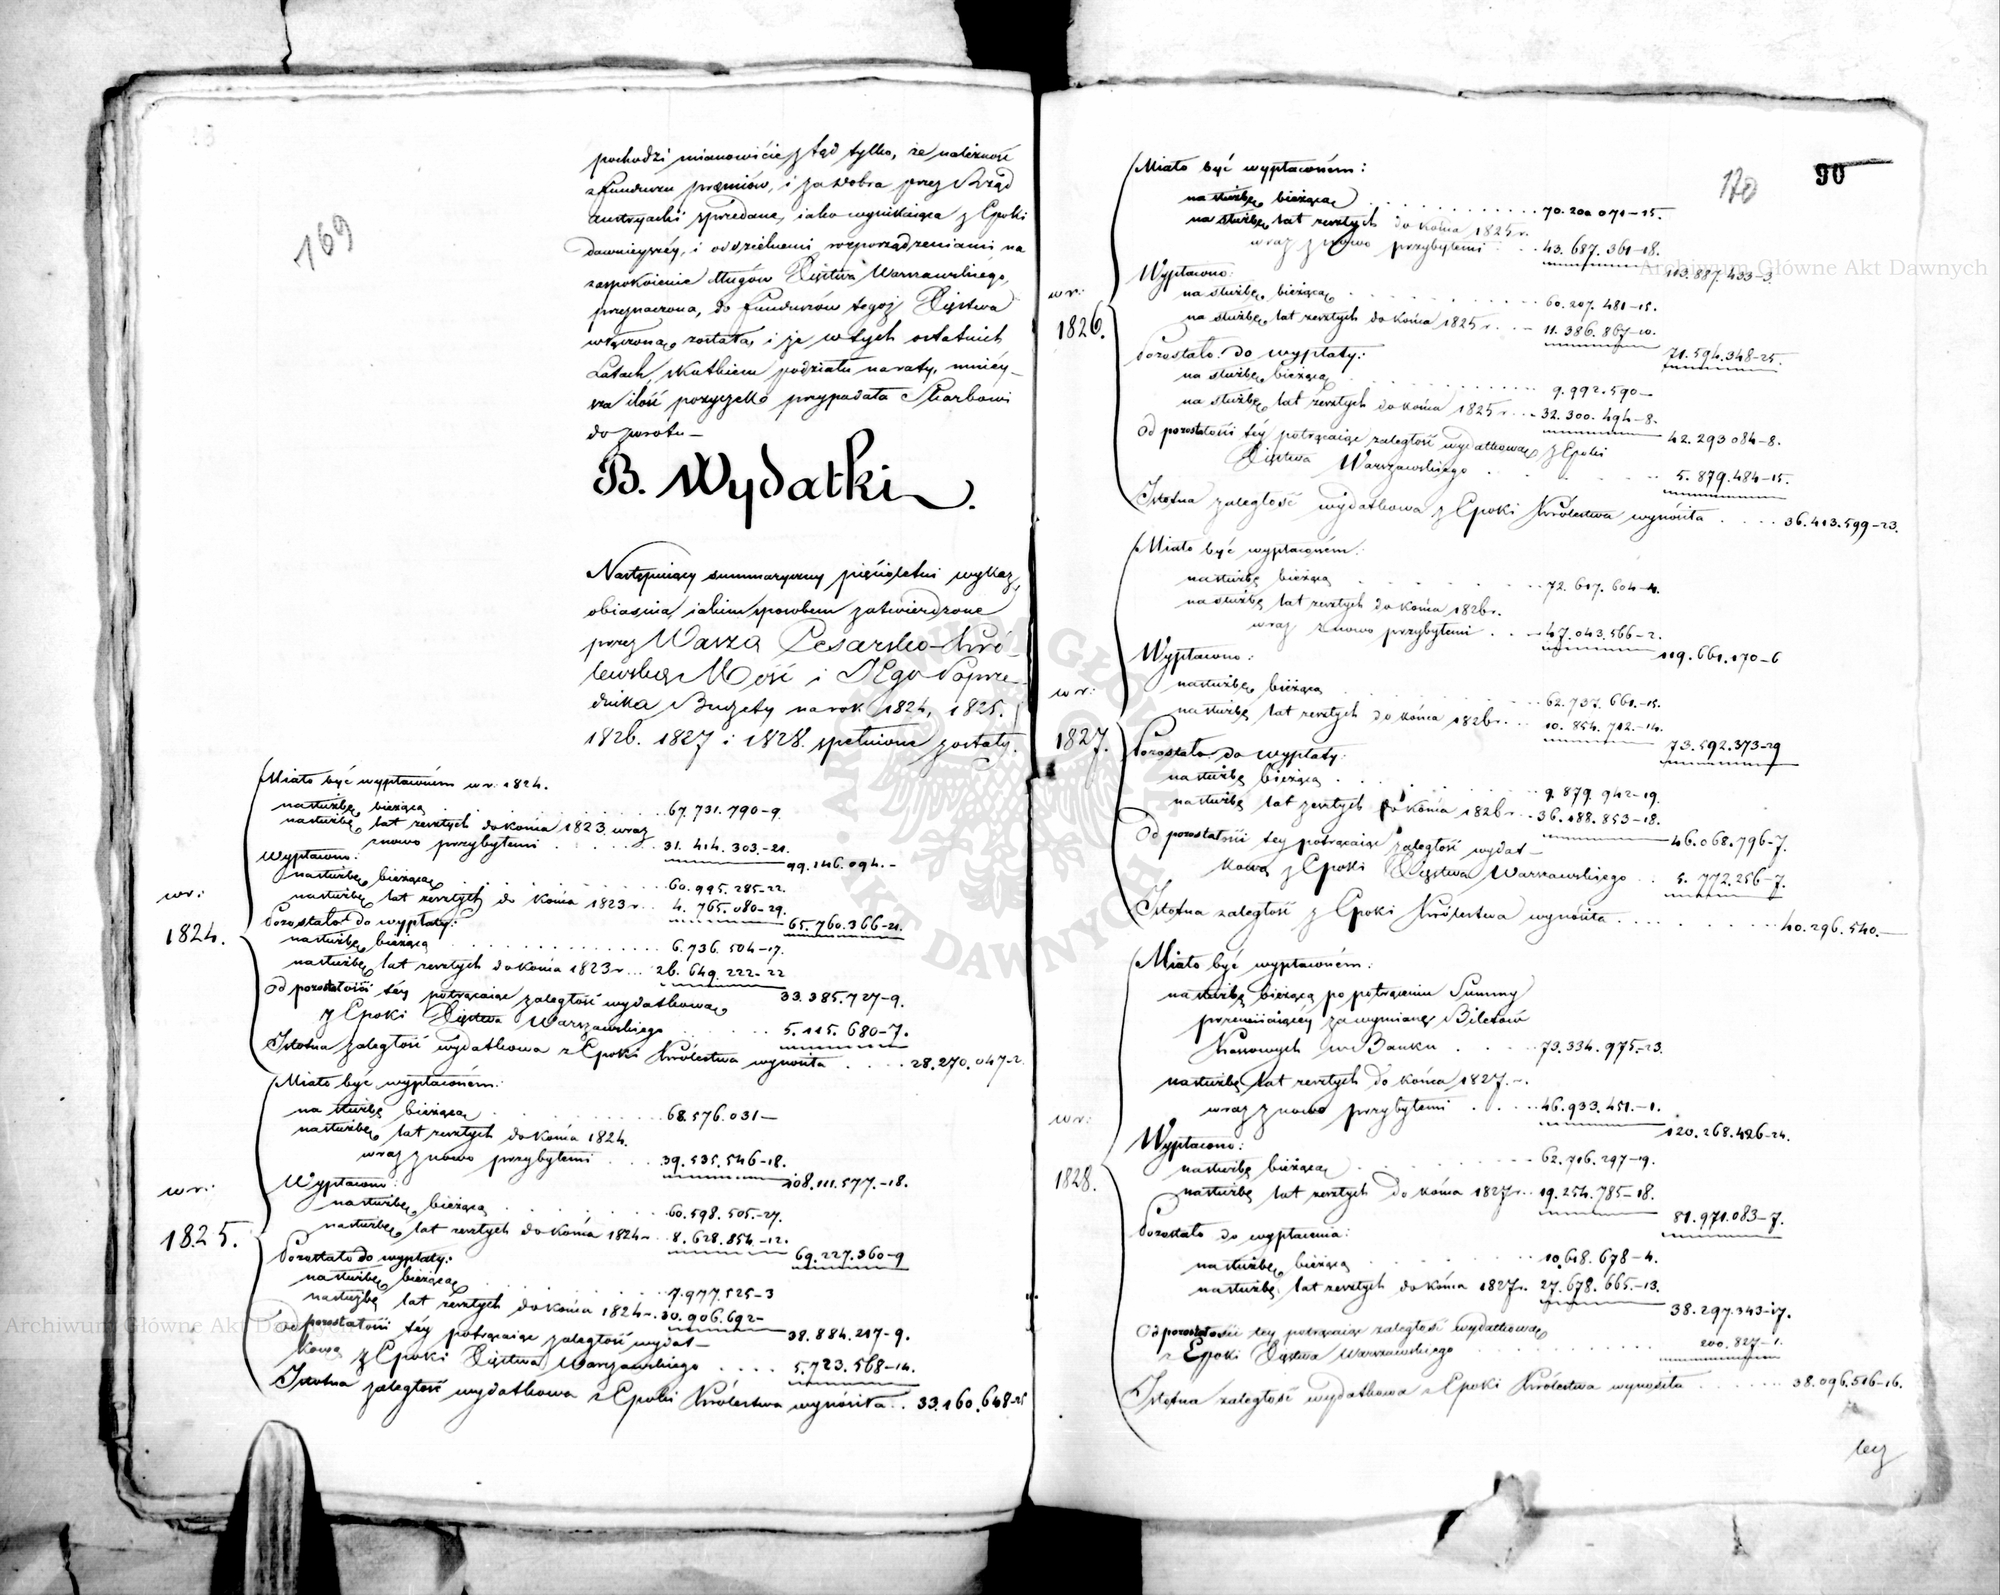 169
pochodzi mianowicie ztąd tylko, że należność
z funduszu premiów, i za dobra przez Rząd
austryacki sprzedane, iako wynikaiąca z Epoki
dawnieyszey, i oddzielnemi rozporządzeniami na
zaspokoienie długów Xięstwa Warszawskiego,
przeznaczona, do funduszów tegoż Xięstwa
włączoną została, i że w tych ostatnich
Latach, skutkiem podziału na raty, mniey-
sza ilość pożyczek przypadała Skarbowi
do zwrotu –
B. Wydatki.
Następuiący summaryczny pięcioletni wykaz,
obiaśnia iakim sposobem zatwierdzone
przez Waszą Cesarsko-Kró-
lewską Mość i Jego Poprze-
dnika Budżety na rok 1824, 1825.
1826. 1827 i 1828. spełnione zostały.
w r: 1824.
Miało być wypłaconém w r: 1824.
na służbę bieżącą . . . 67.731.790-9.
na służbę lat zeszłych do końca 1823 wraz
z nowo przybyłemi . . . 31.414.303.-21.
99.146.094.-
Wypłacono:
na służbę bieżącą . . . 60.995.285-22.
na służbę lat zeszłych do końca 1823 r. . 4.765.080-29.
65.760.366-21.
Pozostało do wypłaty:
na służbę bieżącą . . . 6.736.504-17.
na służbę lat zeszłych do końca 1823 r. . . 26.649.222-22
33.385.727-9.
Od pozostałości tey potrącaiąc zaległość wydatkową
z Epoki Xięstwa Warszawskiego . . . 5.115.680-7.
Istotna zaległość wydatkowa z Epoki Królestwa wynosiła . . . . 28.270.047-2.
w r: 1825.
Miało być wypłaconém:
na służbę bieżącą . . . 68.576.031-
na służbę lat zeszłych do końca 1824.
wraz z nowo przybyłemi . . . 39.535.546-18.
108.111.577.-18.
Wypłacono:
na służbę bieżącą . . . 60.598.505.-27.
na służbę lat zeszłych do końca 1824 r. . 8.628.854.-12.
69.227.360-9
Pozostało do wypłaty:
na służbę bieżącą . . . 7.977.525-3
na służbę lat zeszłych do końca 1824 r. . 30.906.692-
38.884.217-9.
Od pozostałości tey potrącaiąc zaległość wydat-
kową z Epoki Xięstwa Warszawskiego . . . . 5.723.568-14.
Istotna zaległość wydatkowa z Epoki Królestwa wynosiła . . 33.160.648-25
170
90
w r: 1826.
Miało być wypłaconém:
na służbę bieżącą . . . 70.200.071-15.
na służbę lat zeszłych do końca 1825 r.
wraz z nowo przybyłemi . . . 43.687.361-18.
113.887.433-3.
Wypłacono:
na służbę bieżącą . . . 60.207.481-15.
na służbę lat zeszłych do końca 1825 r. . . 11.386.867-10.
71.594.348-25.
Pozostało do wypłaty:
na służbę bieżącą . . . 9.992.590-
na służbę lat zeszłych do końca 1825 r. . . 32.300.494-8.
42.293.084-8.
Od pozostałości tey potrącaiąc zaległość wydatkową z Epoki
Xięstwa Warszawskiego . . . 5.879.484-15.
Istotna zaległość wydatkowa z Epoki Królestwa wynosiła . . . . 36.413.599-23.
w r: 1827.
Miało być wypłaconém:
na służbę bieżącą . . . 72.617.604-4.
na służbę lat zeszłych do końca 1826 r.
wraz z nowo przybyłemi . . . 47.043.566-2.
119.661.170-6
Wypłacono:
na służbę bieżącą . . . 62.737.661.-15.
na służbę lat zeszłych do końca 1826 r. . . 10.854.712.-14.
73.592.373-29
Pozostało do wypłaty:
na służbę bieżącą . . . 9.879.942-19.
na służbę lat zeszłych do końca 1826 r. . . 36.188.853-18.
46.068.796-7.
Od pozostałości tey potrącaiąc zaległość wydat-
kową z Epoki Xięstwa Warszawskiego . . 5.772.256-7.
Istotna zaległość z Epoki Królestwa wynosiła . . . 40.296.540.-
w r: 1828.
Miało być wypłaconém:
na służbę bieżącą po potrąceniu Summy
przemiiaiącey za wymianę Biletów
Kassowych w Banku . . . 73.334.975-23.
na służbę lat zeszłych do końca 1827. r.
wraz z nowo przybyłemi . . . 46.933.451.-1.
120.268.426-24.
Wypłacono:
na służbę bieżącą . . . 62.716.297-19.
na służbę lat zeszłych do końca 1827 r. . 19.254.785-18.
81.971.083-7.
Pozostało do wypłacenia:
na służbę bieżącą . . . 10.618.678-4.
na służbę lat zeszłych do końca 1827 r. 27.678.665-13.
38.297.343-17.
Od pozostałości tey potrącaiąc zaległość wydatkową
z Epoki Xięstwa Warszawskiego . . . 200.827-1.
Istotna zaległość wydatkowa z Epoki Królestwa wynosiła . . . 38.096.516-16.
tey
Archiwum Główne Akt Dawnych
Archiwum Główne Akt Dawnych
ARCHIWUM GŁÓWNE AKT DAWNYCH